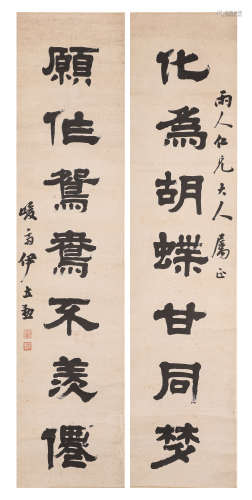 雨人仁兄大人屬正
化為胡蝶甘同夢
願作鴛鴦不羨僊
峻齋伊立勳